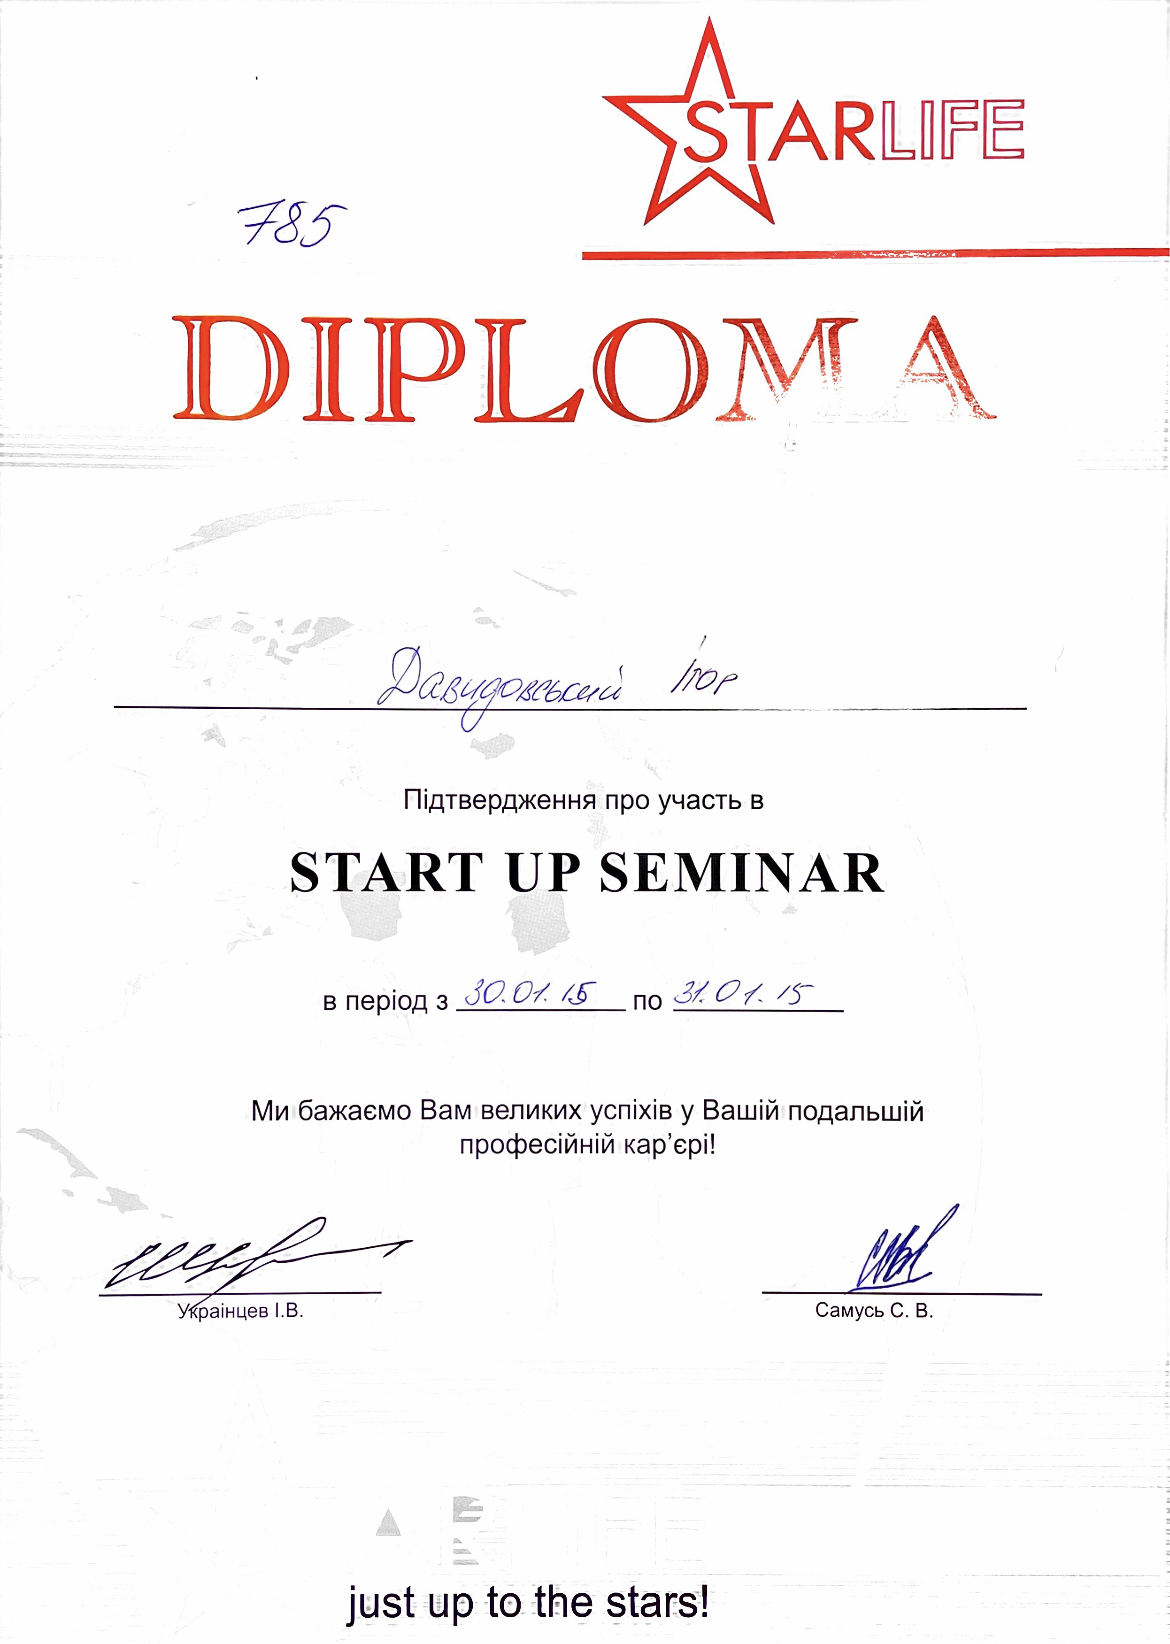 STARLIFE
785
DIPLOMA
Давидовський Ігор
Підтвердження про участь в
START UP SEMINAR
в період з 30.01.15 по 31.01.15
Ми бажаємо Вам великих успіхів у Вашій подальшій
професійній кар’єрі!
Українцев І.В.
Самусь С. В.
just up to the stars!